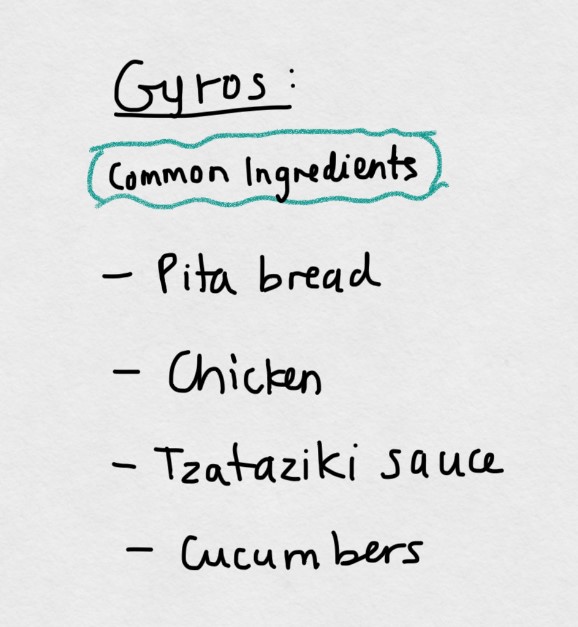 Gyros:
Common Ingredients
- Pita bread
- Chicken
- Tzataziki sauce
- Cucumbers